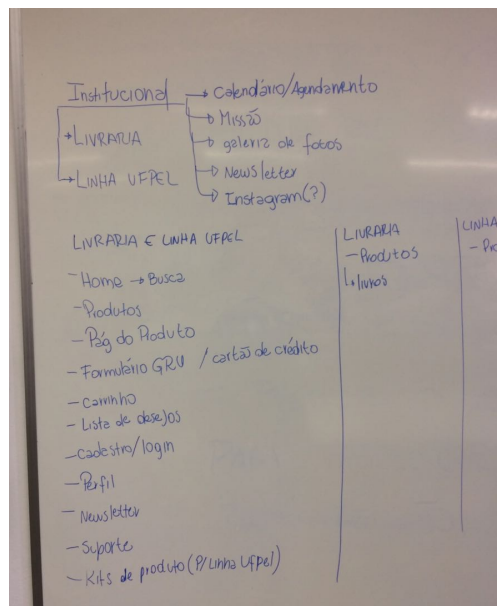 Institucional → Calendário/Agendamento
→ Missão
→ galeria de fotos
→ Newsletter
→ Instagram(?)
→ LIVRARIA
→ LINHA UFPEL
LIVRARIA E LINHA UFPEL
- Home → Busca
- Produtos
- Pág do Produto
- Formulário GRU / cartão de crédito
- carrinho
- Lista de desejos
- cadastro/login
- Perfil
- Newsletter
- Suporte
- Kits de produto (P/ Linha UFpel)
LIVRARIA
- Produtos
↳ livros
LINHA